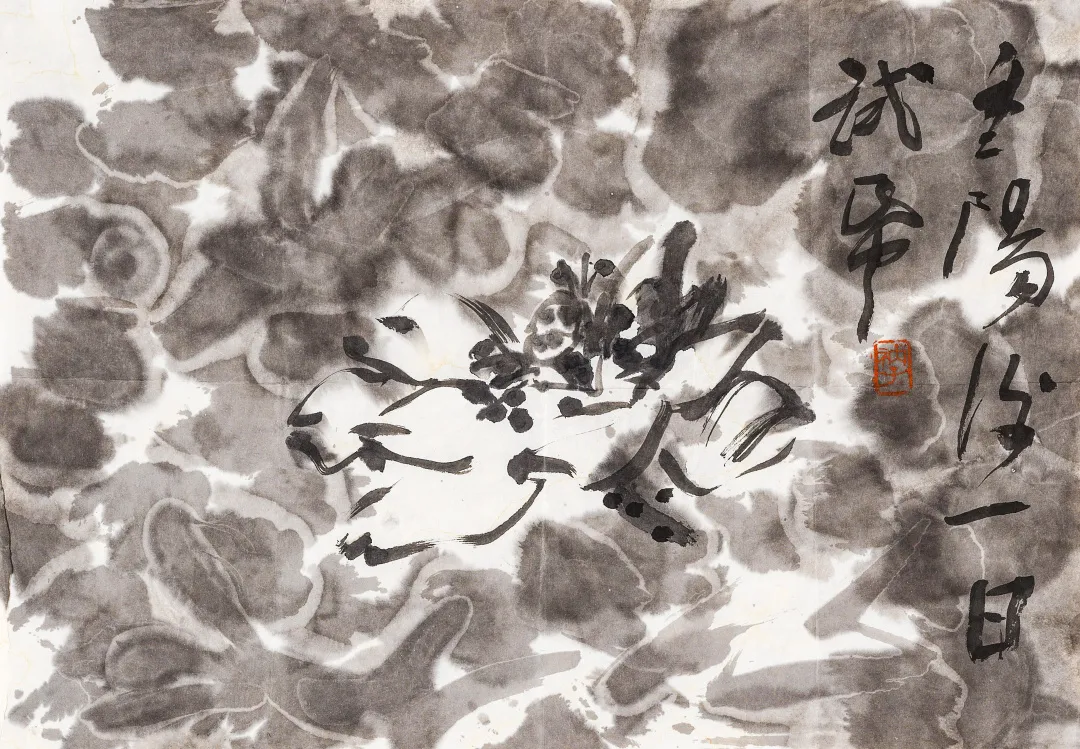 重陽後一日
試帋